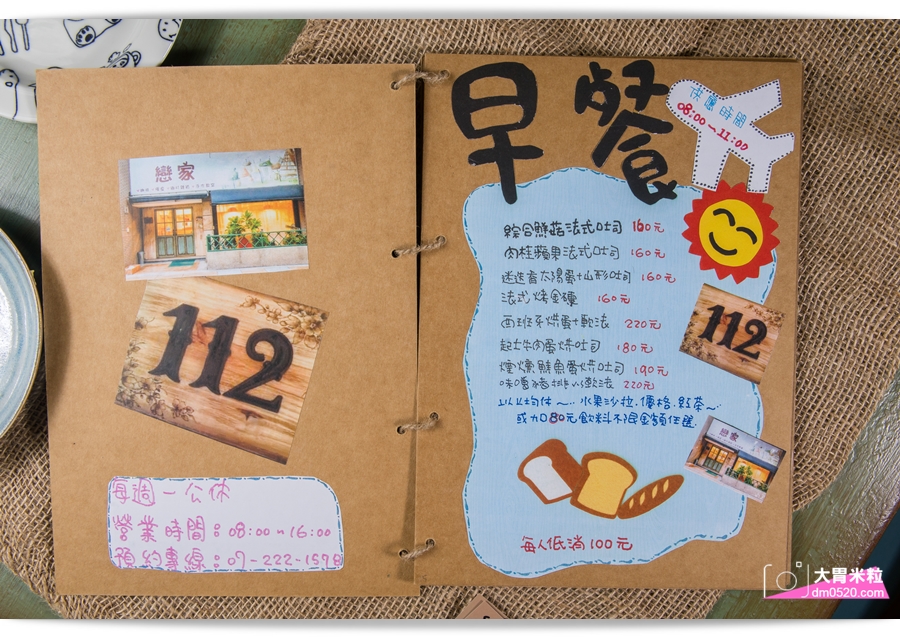 戀家
112
每週一公休
營業時間:08:00~16:00
預約專線:07-222-1578
早餐
供應時間
08:00~11:00
綜合鮮菇法式吐司 160元
肉桂蘋果法式吐司 160元
迷迭香太陽蛋山形吐司 160元
法式烤金磚 160元
西班牙烘蛋+軟法 220元
起士牛肉蛋烤吐司 180元
煙燻鮭魚蛋烤吐司 190元
味噌豬排 軟法 220元
以上均休~水果沙拉.優格.紅茶~
或加80元飲料不限金額任選.
112
戀家
每人低消100元
大胃米粒
dm0520.com